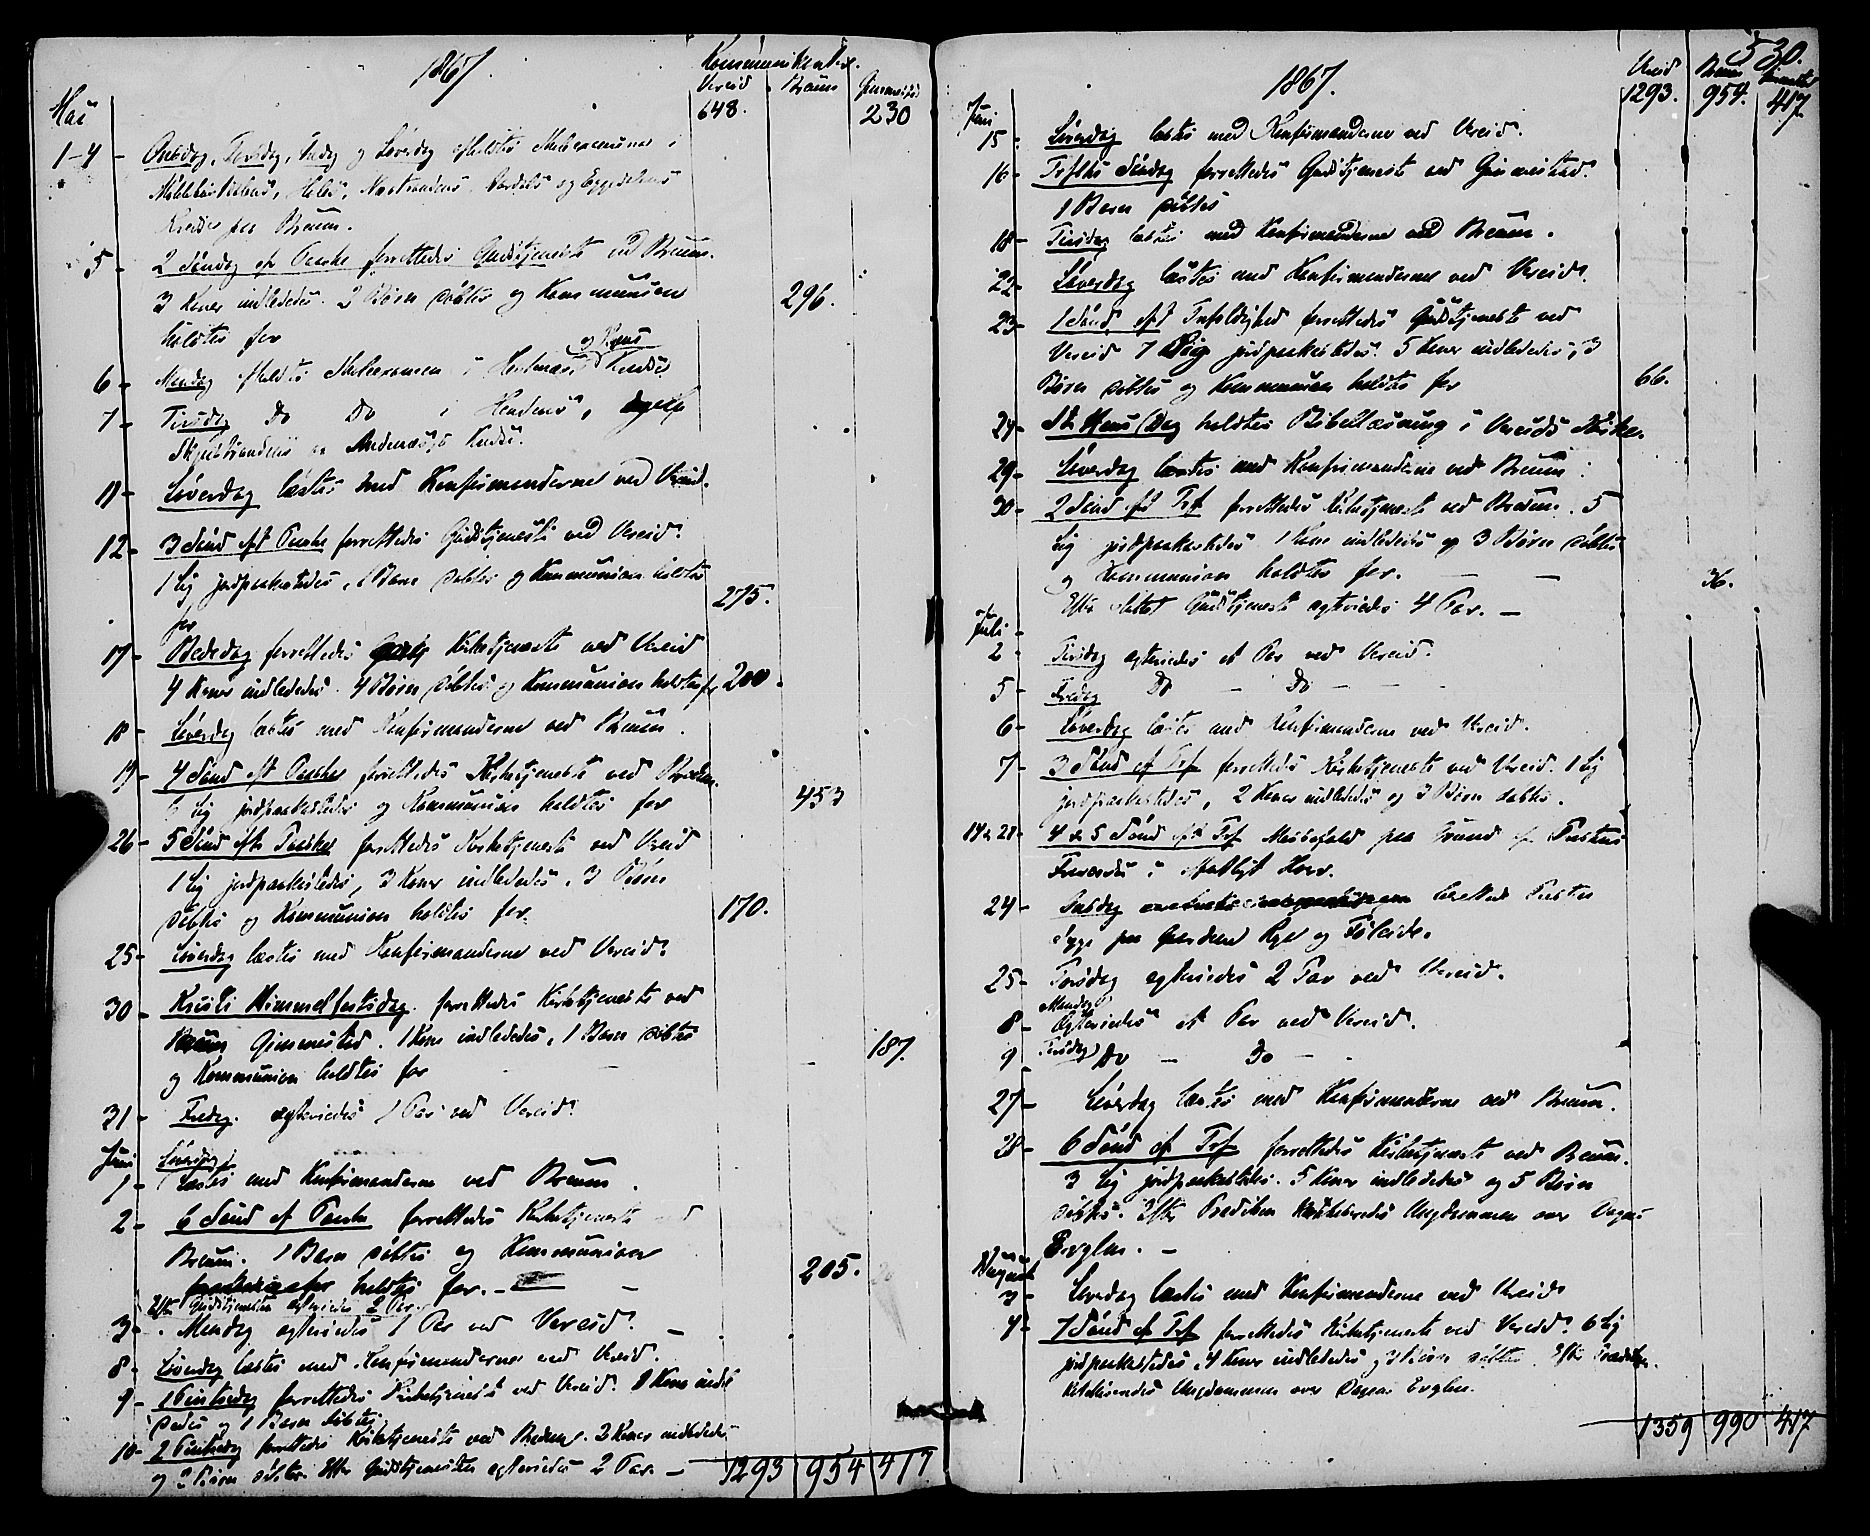 1867.
Kommunikanter.
Vereid Breum Gimmestad
648. 230
Mai
1-4 - Onsdag, Torsdag, Fredag og Løverdag afholdtes Skoleexamener i
Kredse paa Breum.
5 - 2 Søndag ef Paaske forrettedes Gudstjeneste ved Breum.
3 Koner indlededes. 2 Børn døbtes og Kommunion 296.
holdtes for
og Knus
6 - Mandag afholdtes Skoleexamen i Kredse
7 - Tirsdag Do Do i
og Kredse.
11 - Løverdag læstes med Konfirmanderne ved Vereid.
12 - 3 Sønd eft Paaske forrettedes Gudstjeneste ved Vereid.
1 Lig jordpaakastedes, 1 Barn døbtes og Kommunion holdtes 275.
for
17 - Bededag forrettedes Kirketjeneste ved Vereid
4 Koner indlededes. 4 Børn døbtes og Kommunion holdtes for 200.
18 - Løverdag læstes med Konfirmanderne ved Breum.
19 - 4 Sønd eft Paaske forrettedes Kirketjeneste ved Breum.
Lig jordpaakastedes og Kommunion holdtes for 453
26 - 5 Sønd efter Paaske forrettedes Kirketjeneste ved Vereid
1 Lig jordpaakastedes, 3 Koner indlededes. 3 Børn
døbtes og Kommunion holdtes for. 170.
25 - Løverdag læstes med Konfirmanderne ved Vereid.
30 - Kristi Himmelfartsdag. forrettedes Kirketjeneste ved
Gimmestad. 1 Kone indlededes, 1 Barn døbtes 187.
og Kommunion holdtes for
31 - Fredag. ægteviedes 1 Par ved Vereid.
Juni Løverdag
1 - læstes med Konfirmanderne ved Breum.
2 - 6 Sønd ef Paaske forrettedes Kirketjeneste ved
Breum. 1 Barn døbtes og Kommunion
holdtes for. - 205.
Efter Gudstjenesten ægteviedes 2 Par
3 - Mandag ægteviedes 1 Par ved Vereid. -
8 - Løverdag læstes med Konfirmanderne ved Vereid.
9 - 1 Pintsedag forrettedes Kirketjeneste ved Vereid. 1 Kone indle
dedes og 1 Barn døbtes
10 - 2 Pintsedag forrettedes Kirketjeneste ved Breum. 2 Koner indlededes
og 2 Børn døbtes. Efter Gudstjenesten ægteviedes 2 Par. - 1293 954 417
530.
1867.
Vereid Breum Gimmestad
1293. 954. 417.
Juni
15 - Løverdag læstes med Konfirmanderne ved Vereid.
16 - Trefolds Søndag forrettedes Gudstjeneste ved Gimmestad.
1 Barn døbtes
18 - Tirsdag læstes med Konfirmanderne ved Breum.
22 - Løverdag læstes med Konfirmanderne ved Vereid.
23 - 1 Sønd eft Trefoldighed forrettedes Gudstjeneste ved
Vereid 7 Lig jordpaakastedes. 5 Koner indlededes, 3
Børn døbtes og Kommunion holdtes for 66.
24 - St Hans Dag holdtes Bibellæsning i Vereids Kirke.
29 - Løverdag læstes med Konfirmanderne ved Breum.
30 - 2 Sønd eft Tref forrettedes Kirketjeneste ved Breum. 5
Lig jordpaakastedes 1 Kone indlededes og 3 Børn døbtes
og Kommunion holdtes for. - - 36.
Efter Gudstjeneste ægteviedes 4 Par. -
Juli
2 - Tirsdag ægteviedes et Par ved Vereid.
5 - Fredag Do - Do -
6 - Løverdag læstes med Konfirmanderne ved Vereid.
7 - 3 Sønd ef Tref forrettedes Kirketjeneste ved Vereid. 1 Lig
jordpaakastedes, 2 Koner indlededes og 3 Børn døbtes.
14 & 21 - 4 & 5 Sønd eft Tref Messefald paa Grund af Præstens
Fraværelse i Hverv.
24 - Onsdag berettede Præsten
Syge paa Gaardene Rygg og
25 - Torsdag ægteviedes 2 Par ved Vereid.
Mandag
8 - Ægteviedes et Par ved Vereid.
9 Tirsdag Do - Do -
27 - Løverdag læstes med Konfirmanderne ved Breum.
28 - 6 Sønd ef Tref forrettedes Kirketjeneste ved Breum.
3 Lig jordpaakastedes. 5 Koner indlededes og 5 Børn
døbtes. Efter Prædiken Ungdommen over Dagens
Evglm. -
August
3 - Løverdag læstes med Konfirmanderne ved Vereid
4 - 7 Sønd ef Tref forrettedes Kirketjeneste ved Vereid. 6 Lig
jordpaakastedes, 4 Koner indlededes og 3 Børn døbtes. Efter Prædiken
Ungdommen over Dagens Evglm.
1359 990 417